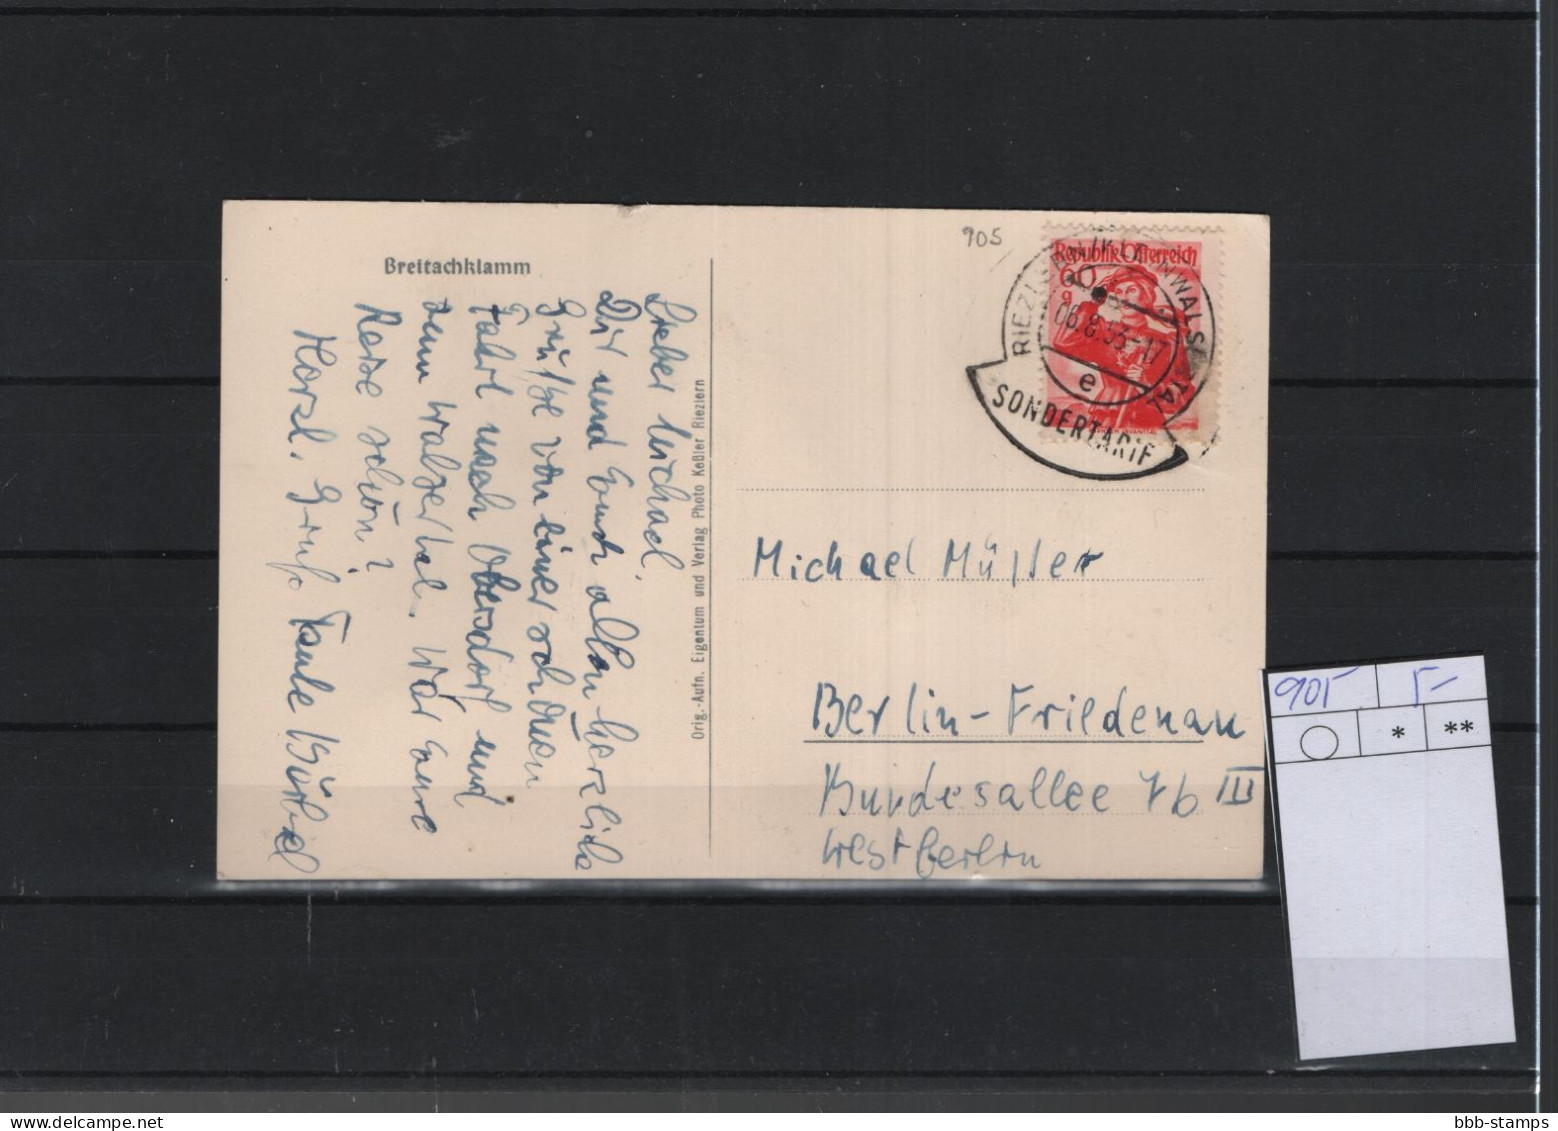 Breitachklamm
Lieber Michael,
Dir und Euch allen herzliche
Grüße von einer schönen
Fahrt nach Oberstdorf und
dem Walsertal. War Eure
Reise schön?
Herzl. Gruß Tante Bärbel
Orig.-Aufn. Eigentum und Verlag Photo Keßler Riezlern
905
Republik Österreich
60
g
RIEZLERN KLEINWALSERTAL
06.8.53-17
e
SONDERTARIF
Michael Müller
Berlin-Friedenau
Bundesallee 76 III
Westberlin
905 5-
* **
bbb-stamps